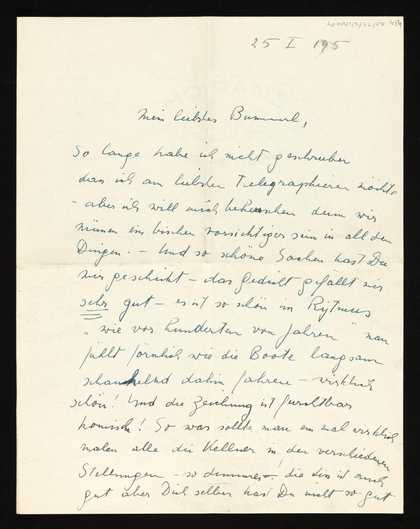 25 I 195
Mein liebstes Bummerl,
So lange habe ich nicht geschrieben
dass ich am liebsten Telegraphieren möchte
- aber ich will mich beherrschen denn wir
müssen ein bischen vorsichtiger sein in all den
Dingen. - Und so schöne Sachen hast Du
mir geschickt - das Gedicht gefällt mir
sehr gut - es ist so schön im Rytmus
"wie vor hunderten von Jahren" man
fühlt förmlich wie die Boote langsam
schaukelnd dahin fahren - wirklich
schön! Und die Zeichnung ist furchtbar
komisch! So was sollte man einmal wirklich
malen alle die Kellner in den verschiedenen
Stellungen - so - die ist auch
gut aber Dich selber hast Du nicht so gut